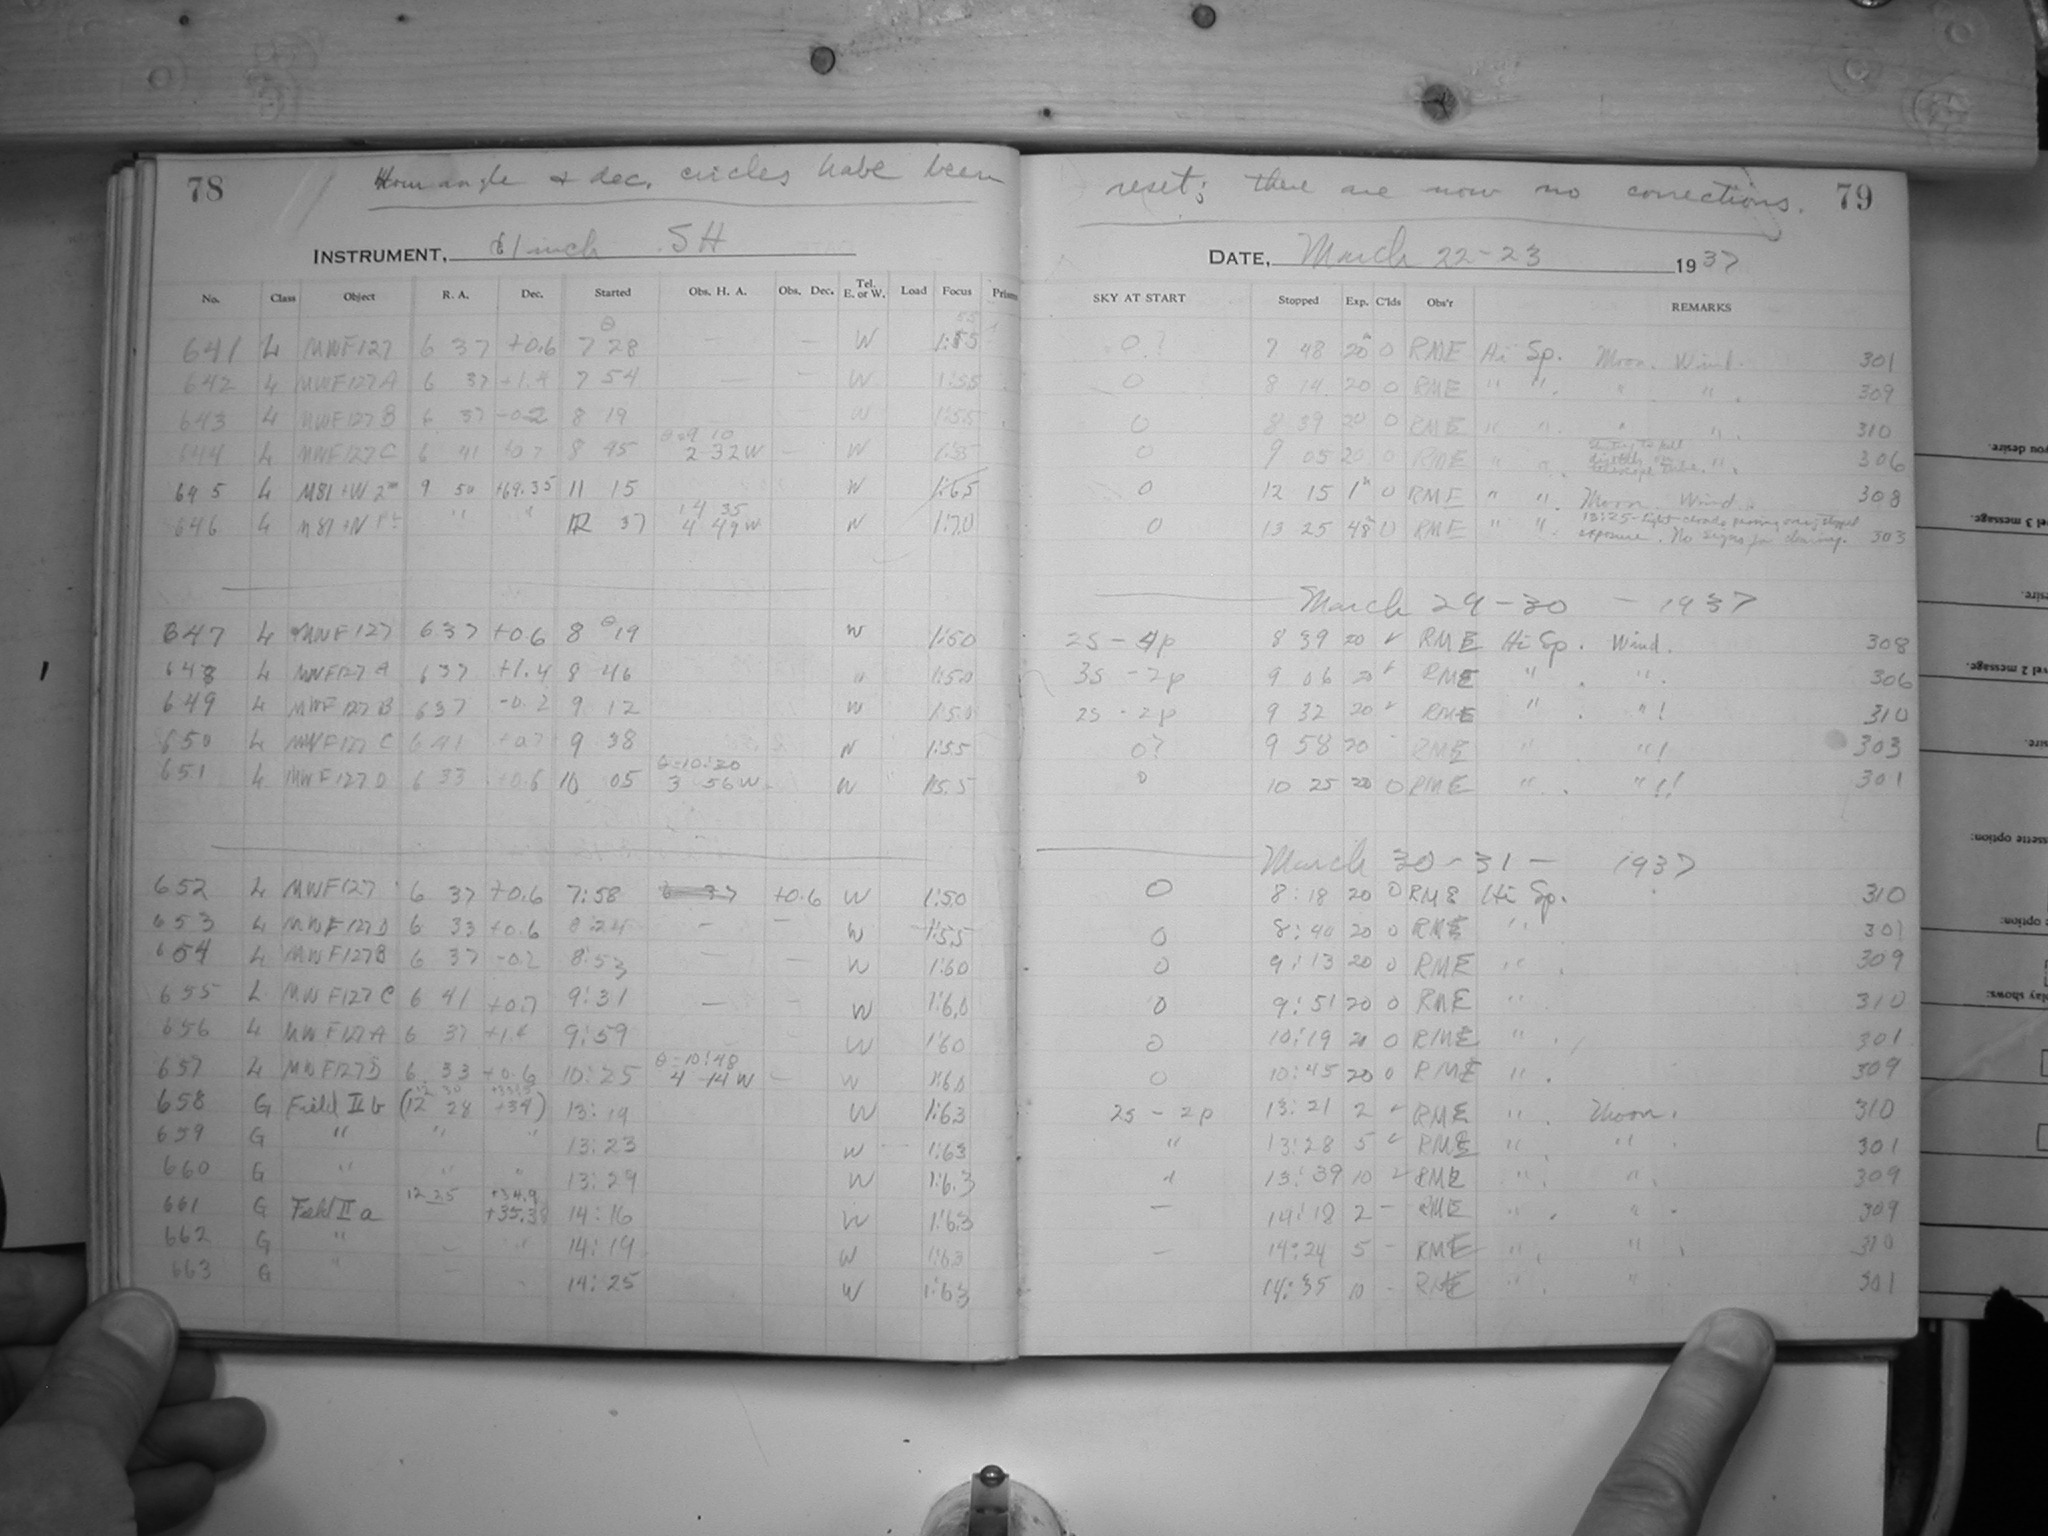 78 Hour angle & dec. circles have been reset; there are now no corrections. 79
INSTRUMENT, 61 inch SH DATE, March 22-23 1937
No. Class Object R. A. Dec. Started Obs. H. A. Obs. Dec. Tel. E. or W. Load Focus Prism SKY AT START Stopped Exp. C'lds Obs'r REMARKS
641 L MWF127 6 37 +0.6 7 28 — — W 1:55 0? 7 48 20 0 RME Hi Sp. Moon. Wind. 301
642 L MWF127A 6 37 +1.4 7 54 — — W 1:55 0 8 14 20 0 RME " ". " ". 309
643 L MWF127B 6 37 -0.2 8 19 W 1:55 0 8 39 20 0 RME " ". " ". 310
644 L MWF127C 6 41 +0.7 8 45 θ=9 10 2 32W — W 1:55 0 9 05 20 0 RME " ". telescope tube. ". 306
645 L M81+W 9 50 +69.35 11 15 W 1:65 0 12 15 1h 0 RME " ". Moon. Wind. 308
646 L M81+N " " 12 37 14 35 4 49W W 1:70 0 13 25 48 0 RME " ". 13:25-light clouds passing over; stopped exposure. No signs for clearing. 303
March 29-30 - 1937
647 L MWF127 6 37 +0.6 8 19 W 1:50 2s-4p 8 39 20 RME Hi Sp. Wind. 308
648 L MWF127A 6 37 +1.4 8 46 " 1:50 3s-2p 9 06 20 RME " . ". 306
649 L MWF127B 6 37 -0.2 9 12 W 1:50 2s-2p 9 32 20 RME " . "! 310
650 L MWF127C 6 41 +0.7 9 38 W 1:55 0? 9 58 20 RME " "! 303
651 L MWF127D 6 33 +0.6 10 05 θ=10:20 3 56W W 1:5.5 0 10 25 20 0 RME " . "!! 301
March 30-31 - 1937
652 L MWF127 6 37 +0.6 7:58 6 37 +0.6 W 1:50 0 8:18 20 0 RME Hi Sp. 310
653 L MWF127D 6 33 +0.6 8:24 — — W 1:55 0 8:40 20 0 RME " 301
654 L MWF127B 6 37 -0.2 8:53 — — W 1:60 0 9:13 20 0 RME " . 309
655 L MWF127C 6 41 +0.7 9:31 — — W 1:6.0 0 9:51 20 0 RME " 310
656 L MWF127A 6 37 +1.4 9:59 W 1:60 0 10:19 20 0 RME " . 301
657 L MWF127D 6 33 +0.6 10:25 θ=10:48 4 14W — W 1:60 0 10:45 20 0 RME " . 309
658 G Field II b (12 28 +34) 13:19 W 1:63 2s-2p 13:21 2 RME " . Moon. 310
659 G " " " 13:23 W 1:63 " 13:28 5 RME " . " . 301
660 G " " " 13:29 W 1:6.3 13:39 10 RME " . ". 309
661 G Field II a 12 25 +34.9 +35.3 14:16 W 1:63 — 14:18 2 - RME " . " . 309
662 G " - " 14:19 W 1:63 — 14:24 5 - RME " . " . 310
663 G " - 14:25 W 1:63 14:35 10 - RME " . " . 301
you desire.
el 3 message.
esire.
vel 2 message.
sure.
ssette option:
option:
play shows: